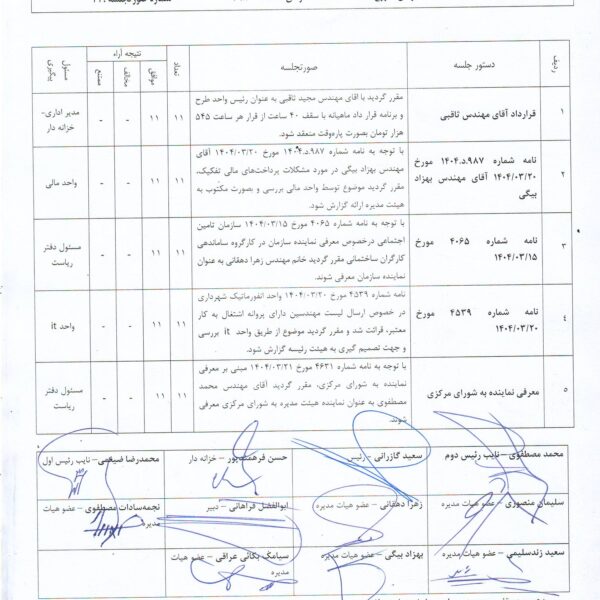 ردیف
دستور جلسه
صورتجلسه
تعداد
نتیجه آراء
موافق
مخالف
ممتنع
مسئول
پیگیری
۱
قرارداد آقای مهندس ثاقبی
مقرر گردید با اقای مهندس مجید ثاقبی به عنوان رئیس واحد طرح
و برنامه قرار داد ماهیانه با سقف ۴۰ ساعت از قرار هر ساعت ۵۴۵
هزار تومان بصورت پاره‌وقت منعقد شود.
۱۱
۱۱
-
-
مدیر اداری-
خزانه دار
۲
نامه شماره ۹۸۷.د.۱۴۰۴ مورخ
۱۴۰۴/۰۳/۲۰ آقای مهندس بهزاد
بیگی
با توجه به نامه شماره ۹۸۷.د.۱۴۰۴ مورخ ۱۴۰۴/۰۳/۲۰ آقای
مهندس بهزاد بیگی در مورد مشکلات پرداخت‌های مالی تفکیک،
مقرر گردید موضوع توسط واحد مالی بررسی و بصورت مکتوب به
هیئت مدیره ارائه گزارش شود.
۱۱
۱۱
-
-
واحد مالی
۳
نامه شماره ۴۰۶۵ مورخ
۱۴۰۴/۰۳/۱۵
با توجه به نامه شماره ۴۰۶۵ مورخ ۱۴۰۴/۰۳/۱۵ سازمان تامین
اجتماعی درخصوص معرفی نماینده سازمان در کارگروه ساماندهی
کارگران ساختمانی مقرر گردید خانم مهندس زهرا دهقانی به عنوان
نماینده سازمان معرفی شوند.
۱۱
۱۱
-
-
مسئول دفتر
ریاست
۴
نامه شماره ۴۵۳۹ مورخ
۱۴۰۴/۰۳/۲۰
نامه شماره ۴۵۳۹ مورخ ۱۴۰۴/۰۳/۲۰ واحد انفورماتیک شهرداری
در خصوص ارسال لیست مهندسین دارای پروانه اشتغال به کار
معتبر، قرائت شد و مقرر گردید موضوع از طریق واحد it بررسی
و جهت تصمیم گیری به هیئت رئیسه گزارش شود.
۱۱
۱۱
-
-
واحد it
۵
معرفی نماینده به شورای مرکزی
با توجه به نامه شماره ۴۶۳۱ مورخ ۱۴۰۴/۰۳/۲۱ مبنی بر معرفی
نماینده به شورای مرکزی، مقرر گردید آقای مهندس محمد
مصطفوی به عنوان نماینده هیئت مدیره به شورای مرکزی معرفی
شوند.
۱۱
۱۱
-
-
مسئول دفتر
ریاست
محمد مصطفوی – نایب رئیس دوم
سعید گازرانی – رئیس
حسن فرهمندپور – خزانه دار
محمدرضا ضیغمی – نایب رئیس اول
سلیمان منصوری – عضو هیات مدیره
زهرا دهقانی – عضو هیات مدیره
ابوالفضل فراهانی – دبیر
نجمه‌سادات مصطفوی – عضو هیات
مدیره
سعید زندسلیمی – عضو هیات مدیره
بهزاد بیگی – عضو هیات مدیره
سیامک بکائی عراقی – عضو هیات
مدیره